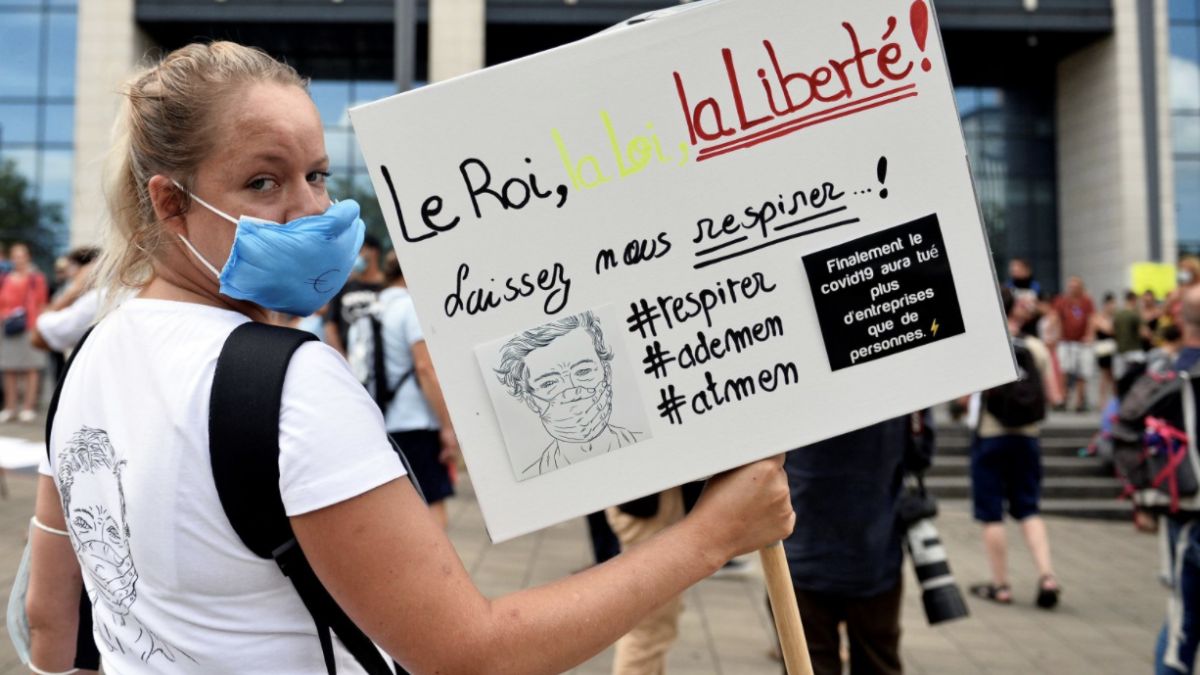 Le Roi, la Loi, la Liberté!
Laissez nous respirer...!
#respirer
#ademen
#atmen
Finalement le
covid19 aura tué
plus
d'entreprises
que de
personnes.⚡
€